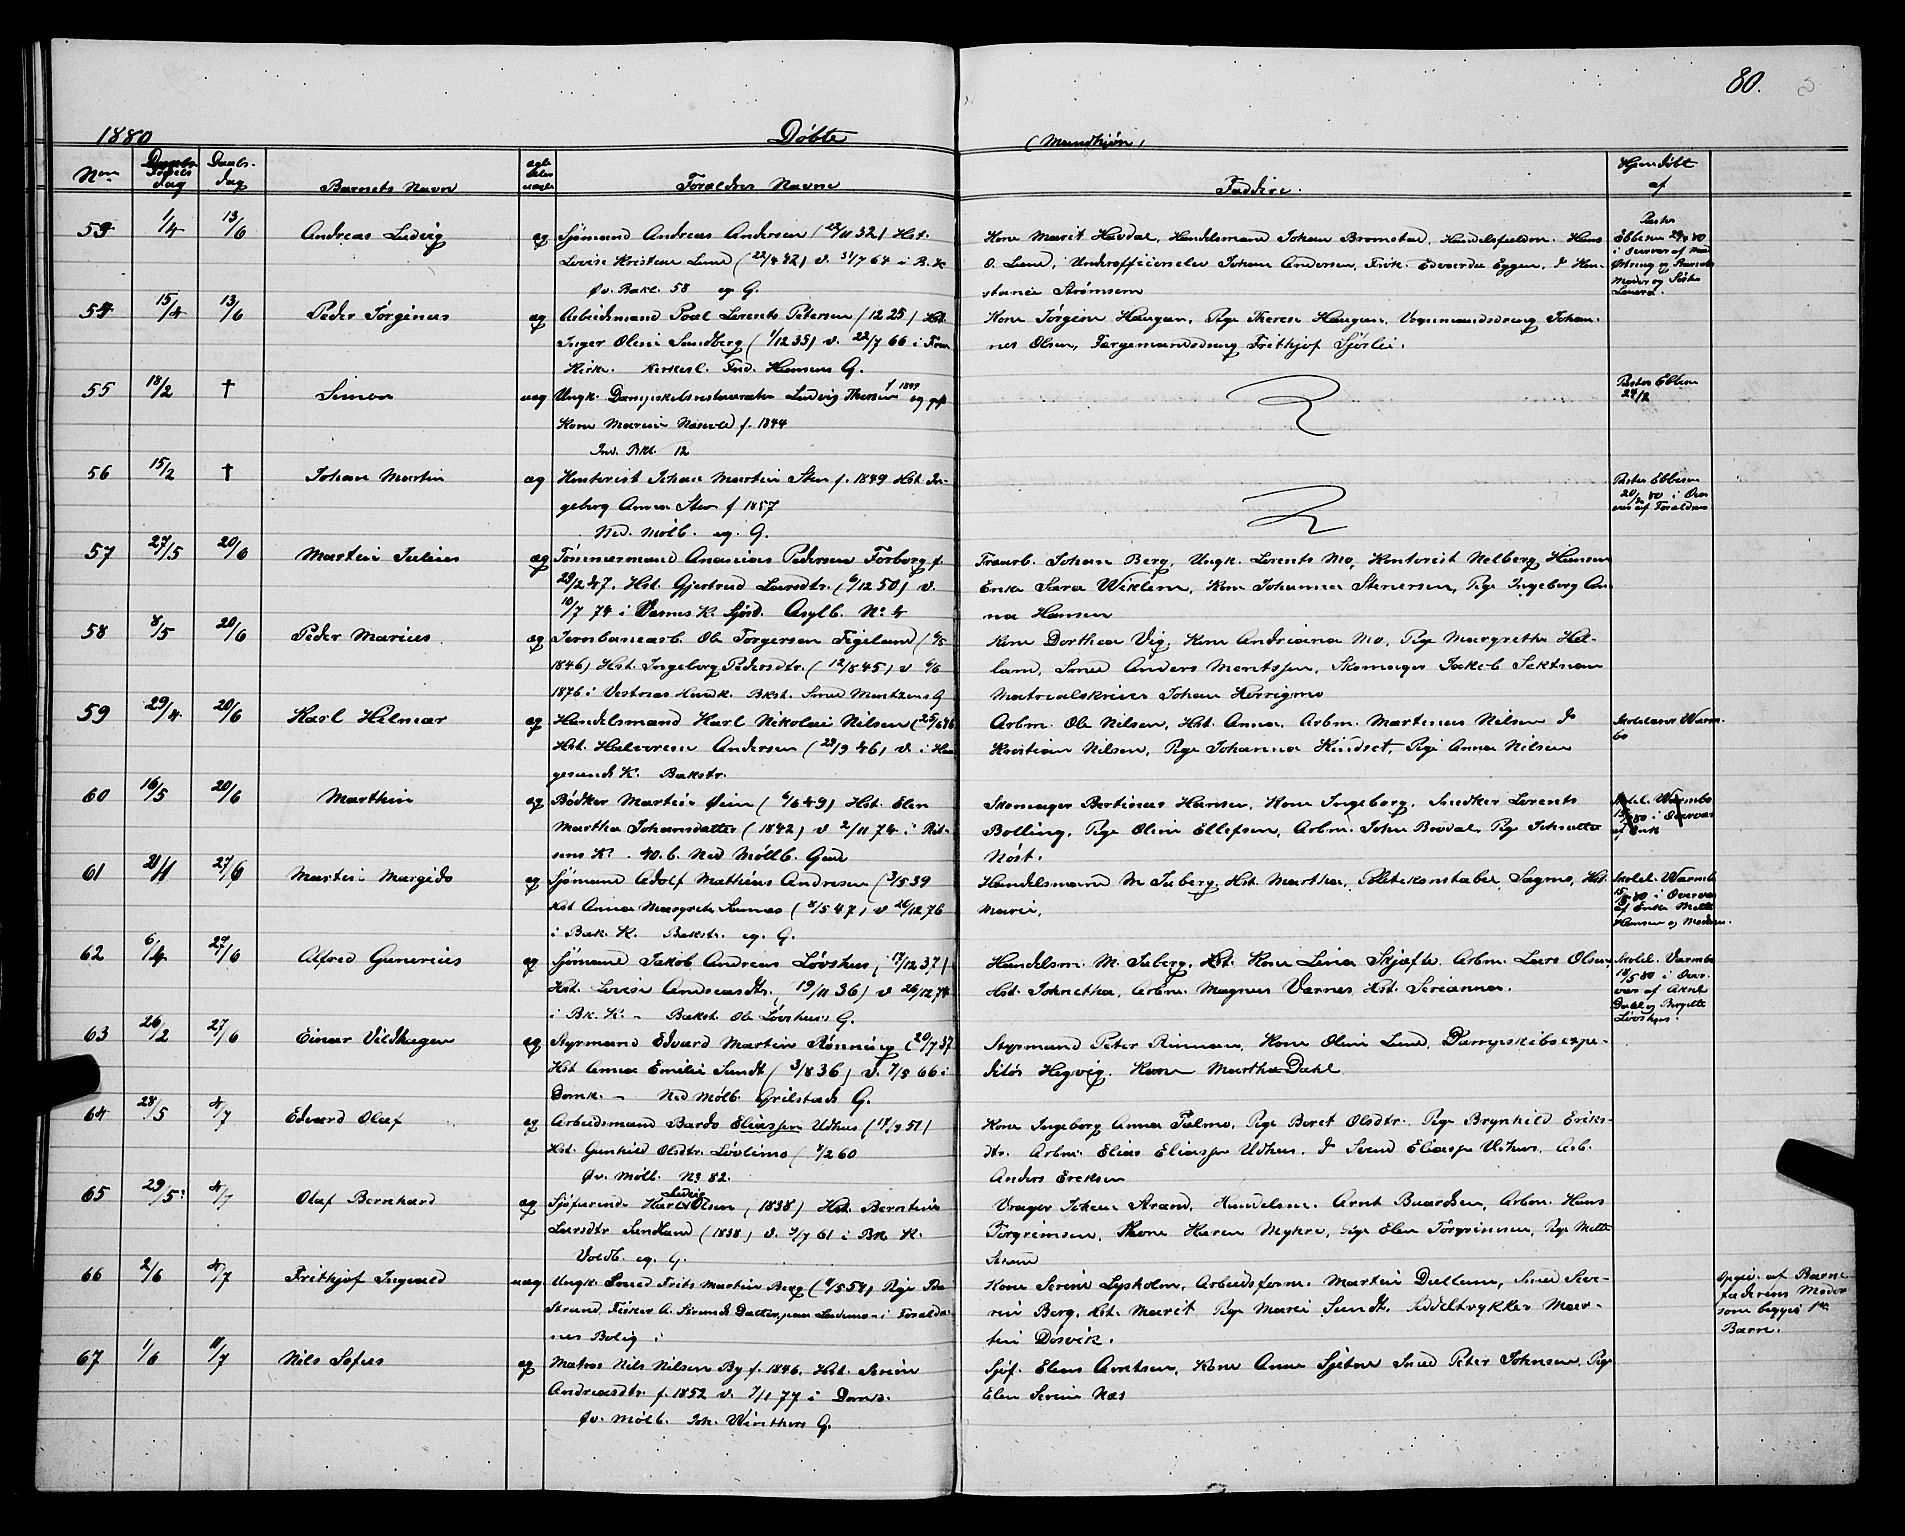 80.
1880 Døbte (Mandkjøn)
Nm Fødsels dag Daabs- dag Barnets Navn ægte eller uægte Foraldres Navne Faddere. Hjemdøbt af
53 1/4 13/6 Andreas Ludvig æg Sjømand Andreas Andersen (22/11 32) Hst.
Lovise Kristene Lund (22/4 42) v. 31/7 64 i B. K
Øv. Bakl. 58 eg G.
Kone Marit Havdal, Handelsmand Johan Bromstad, Handelsfuldm. Hans
O. Lund, Underofficerselev Johan Andersen, Frøk. Edvarda Eggen, d Kon-
stance Strømsem
Pastor
Ebbesen
54 15/4 13/6 Peder Jørginus æg Arbeidsmand Poul Lorents Petersen (12 25) Hst.
Inger Oline Sundberg (1/12 35) v. 22/7 66 i Frue
Kirke. Kirkesl. Fred. Hansens G.
Kone Jørgine Haugan, Pige Therese Haugan, Vognmandsdreng Johan-
nes Olsen, Fargemandsdreng Frithjof Sjørlei.
55 18/2 † Simon uæg Ungk. Dampskibsrestauratør Ludvig Thesen f 1849 og gift
Kone Marie f. 1844
Ind. Bkl. 12
Pastor Ebbesen
24/2
56 15/2 † Johan Martin æg Kontorist Johan Martin Sten f. 1849 Hst. In-
geborg Anna Sten f 1857
Ned. Mølb. eg. G.
Pastor Ebbesen
20/2 80 i Over
vær af Foraldrene
57 27/5 20/6 Martin Julius æg Tømmermand Ananias Pedersen Forborg f.
23/2 47. Hst. Gjertrud Larsdtr. (6/12 50) v.
10/7 74 i Værnes K. Sjørd. Asylb. No 4
Fraarb. Johan Berg, Ungk. Lorents Mo, Kontorist Nelberg Hansen
Enke Sara Wiklem, Kone Johanna Stenersen, Pige Ingeborg An-
na Hansen
58 8/5 20/6 Peder Marius æg Jernbanearb. Ole Torgersen Figeland (6/5
1846) Hst. Ingeborg Pedersdtr. (12/8 45) v 6/6
1876 i Vestnæs Hovedk. Bkst. Smed Mentzens G
Kone Dorthea Vig, Kone Andriana Mo, Pige Margrethe Hel-
lam, Smed Anders Mentzsen, Skomager Jakob Sektnan
Matrialskriver Johan Herrigmo
59 29/4 20/6 Karl Hilmar æg Handelsmand Karl Nikolai Nilsen (25/6 46
Hst. Halvorine Andersen (29/9 46) v. i Hau
gesunds K. Bakstr.
Arbm. Ole Nilsen, Hst. Anna, Arbm. Martinus Nilsen d
Kristian Nilsen, Pige Johanna Kindset, Pige Anna Nilsen
Skolelærer Warm-
bo
60 16/5 20/6 Marthin æg Bødker Martin Øien (6/6 49) Hst. Elen
Martha Johannsdatter (1842) v 2/11 74 i Ris-
sens K. 40.b. Ned Møllb. Gade
Skomager Bertinus Hansen, Kone Ingeborg, Snedker Lorents
Bolling, Pige Oline Ellefsen, Arbm. John Brodal, Pige Johnette
Nøst.
Skolel. Warmbo
15/5 80 i Overvær
af Enk
61 21/1 27/6 Martin Margido æg Sjømand Adolf Mathias Andresen (3/5 39
Hst. Anna Margrete Sunnes (8/5 47) v 26/12 76
i Bak. K. Bakstr. eg. G.
Handelsmand M Saberg, Hst. Martha, Politikonstabel Sagmo, Hst.
Marie,
Skolel. Warmb
15/5 80 i Overvær
af Enke Mette
Hansen og Moderen.
62 6/4 27/6 Alfred Gunerius æg Sjømand Jakob Andreas Løvshus (17/12 37)
Hst. Lovise Andreasdtr. (19/11 36) v 26/12 74
i Bk. K. – Bakst. Ole Løvshus G.
Handelsm. M. Saberg, Hst. Kone Lina Skjefte, Arbm. Lars Olsen,
Hst. Johnetha, Arbm. Magnus Varnes Hst. Serianna.
Skolel. Varmbo
18/5 80 i Over-
vær af Arnt
Dahl og Birgitte
Løvshus.
63 26/2 27/6 Einar Vildhagen æg Styrmand Edvard Martin Rønning (20/7 37
Hst. Anna Emilie Sundt (3/8 36) v. 7/5 66 i
Domk. – Ned Mølb. Grilstads G.
Styrmand Peter Rinnan, Kone Oline Lund, Dampskibsexpe-
ditør Hegvig, Kone Martha Dahl
64 28/5 4/7 Edvard Olaf æg Arbeidsmand Bardo Eliassen Udhus (17/9 51)
Hst. Gunhild Olsdtr. Løvlimo (1/2 60
Øv. Mølb. No 82.
Kone Ingeborg Anna Talmo, Pige Beret Olsdtr. Pige Brynhild Eriks-
dtr. Arbm. Elias Eliassen Udhus, d Svend Eliassen Udhus, Arb.
Anders Eriksen
65 29/5 4/7 Olaf Bernhard æg Sjøfarend. Karl Ludvig Olsen (1838) Hst. Berntine
Larsdtr Sundland (1838) v. 9/7 61 i Bk K.
Voldb. eg. G.
Vrager Johan Strand, Handelsm. Arnt Baardsen, Arbm. Hans
Torgrimsen, Kone Karen Myhre, Pige Elen Torgrimsen, Pige Mette
Strand
66 2/6 4/7 Frithjof Ingvald uæg Ungk. Smed Frits Martin Berg (9/5 58) Pige
Strand, Fisker A. Strands Datter, paa Lademoen i Foraldre-
nes Bolig i
Kone Serine Lysholm, Arbeidsform. Martin Dullum, Smed Seve-
rin Berg, Hst. Marit Pige Marie Sundt, Seddeltrykker Mar-
tin Døsvik.
Opgiv. af Barne
faderens Moder
som begges 1ste
Barn.
67 1/6 11/7 Nils Sofus æg Matros Nils Nilsen By f. 1846. Hst. Serine
Andreasdtr. f. 1852 v. 7/1 77 i Domk.
Øv. Mølb. Joh. Winthers G.
Sjøf. Elias Arntsen, Kone Anne Sjetne Smed Peter Johnsen, Pige
Elen Serine Næs